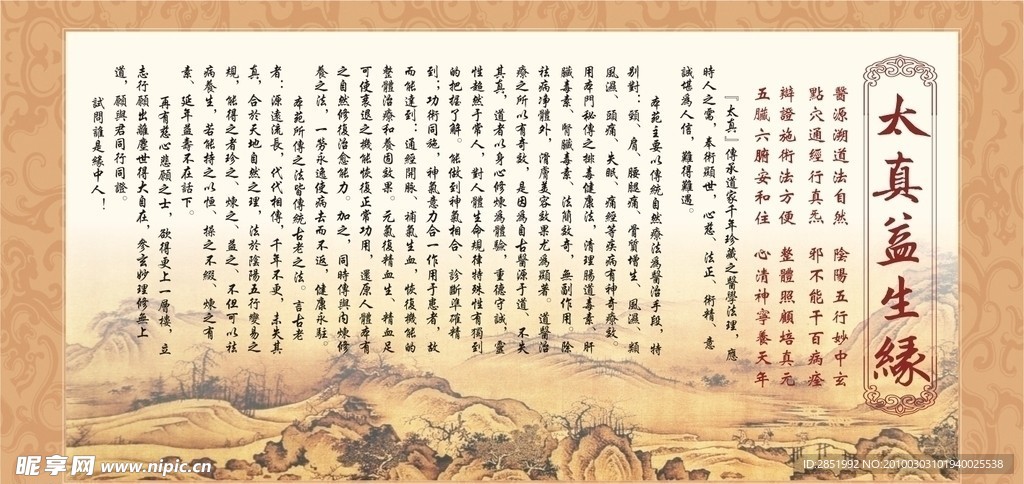 太真益生緣
醫源溯道法自然　陰陽五行妙中玄
點穴通經行真炁　邪不能干百病痊
辯證施術法方便　整體照顧培真元
五臟六腑安和住　心清神寧養天年
『太真』傳承道家千年珍藏之醫學法理，應
時人之需，奉術顯世，心慈、法正、術精，意
誠堪為人信，難得難遇。
本苑主要以傳統自然療法為醫治手段，特
別對：頸、肩、腰腿痛、骨質增生、風濕、類
風濕、頭痛、失眠、痛經等疾病有神奇療效。
用本門秘傳之排毒健康法，清理腸道毒素、肝
臟毒素、腎臟毒素，法簡效奇，無副作用。除
祛病凈體外，清膚美容效果尤為顯著。道醫治
療之所以有奇效，是因為自古醫源于道、不失
其真，道者以身心修煉為體驗，重德守誠，靈
性超然于常人，對人體生命規律特殊性有獨到
的把握了解。能做到神氣相合、診斷準確精
到；功術同施，神氣意力合一作用于患者，故
而能達到：通經開脈、補氣生血，恢復機能的
整體治療和養固效果。元氣復精血生、精血足
可使衰退之機能恢復正常功用，還原人體本有
之自然修復治愈能力。加之，同時傳與內煉修
養之法，一勞永逸使病去而不返，健康永駐。
本苑所傳之法皆傳統古老之法。言古老
者：源遠流長，代代相傳，千年不更，未失其
真，合於天地自然之理，法於陰陽五行變易之
規，能得之者珍之、煉之、益之、不但可以祛
病養生，若能持之以恒、操之不綴、煉之有
素、延年益壽不在話下。
再有慈心悲願之士，欲得更上一層樓，立
志行願出離塵世得大自在，參玄妙理修無上
道，願與君同行同證。
試問誰是緣中人！
昵享网 www.nipic.cn
ID:2851992 NO:20100303101940025538